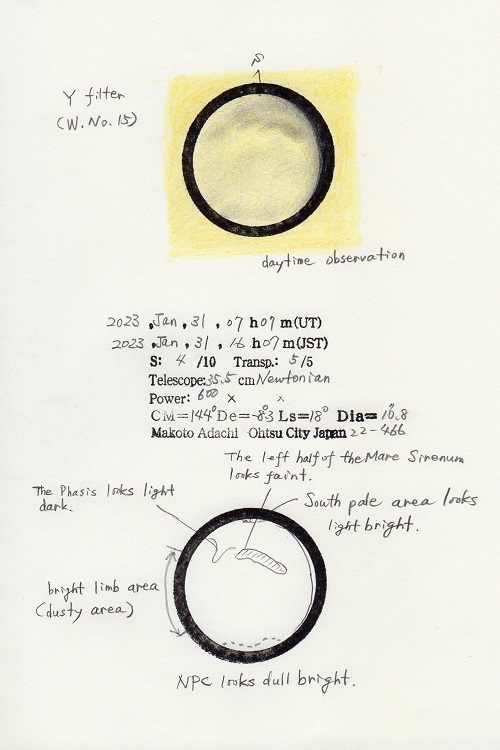 S
Y filter
(W.No.15)
daytime observation
2023 , Jan , 31 , 07 h 07 m(UT)
2023 , Jan , 31 , 16 h 07 m(JST)
S: 4 /10 Transp.: 5 /5
Telescope: 35.5 cm Newtonian
Power: 600 × ×
CM=144° De=-8.3° Ls=18° Dia=10.8"
Makoto Adachi Ohtsu City Japan 22-466
The left half of the Mare Sirenum
looks faint.
The Phasis looks light
dark.
South pale area looks
light bright.
bright limb area
(dusty area)
NPC looks dull bright.